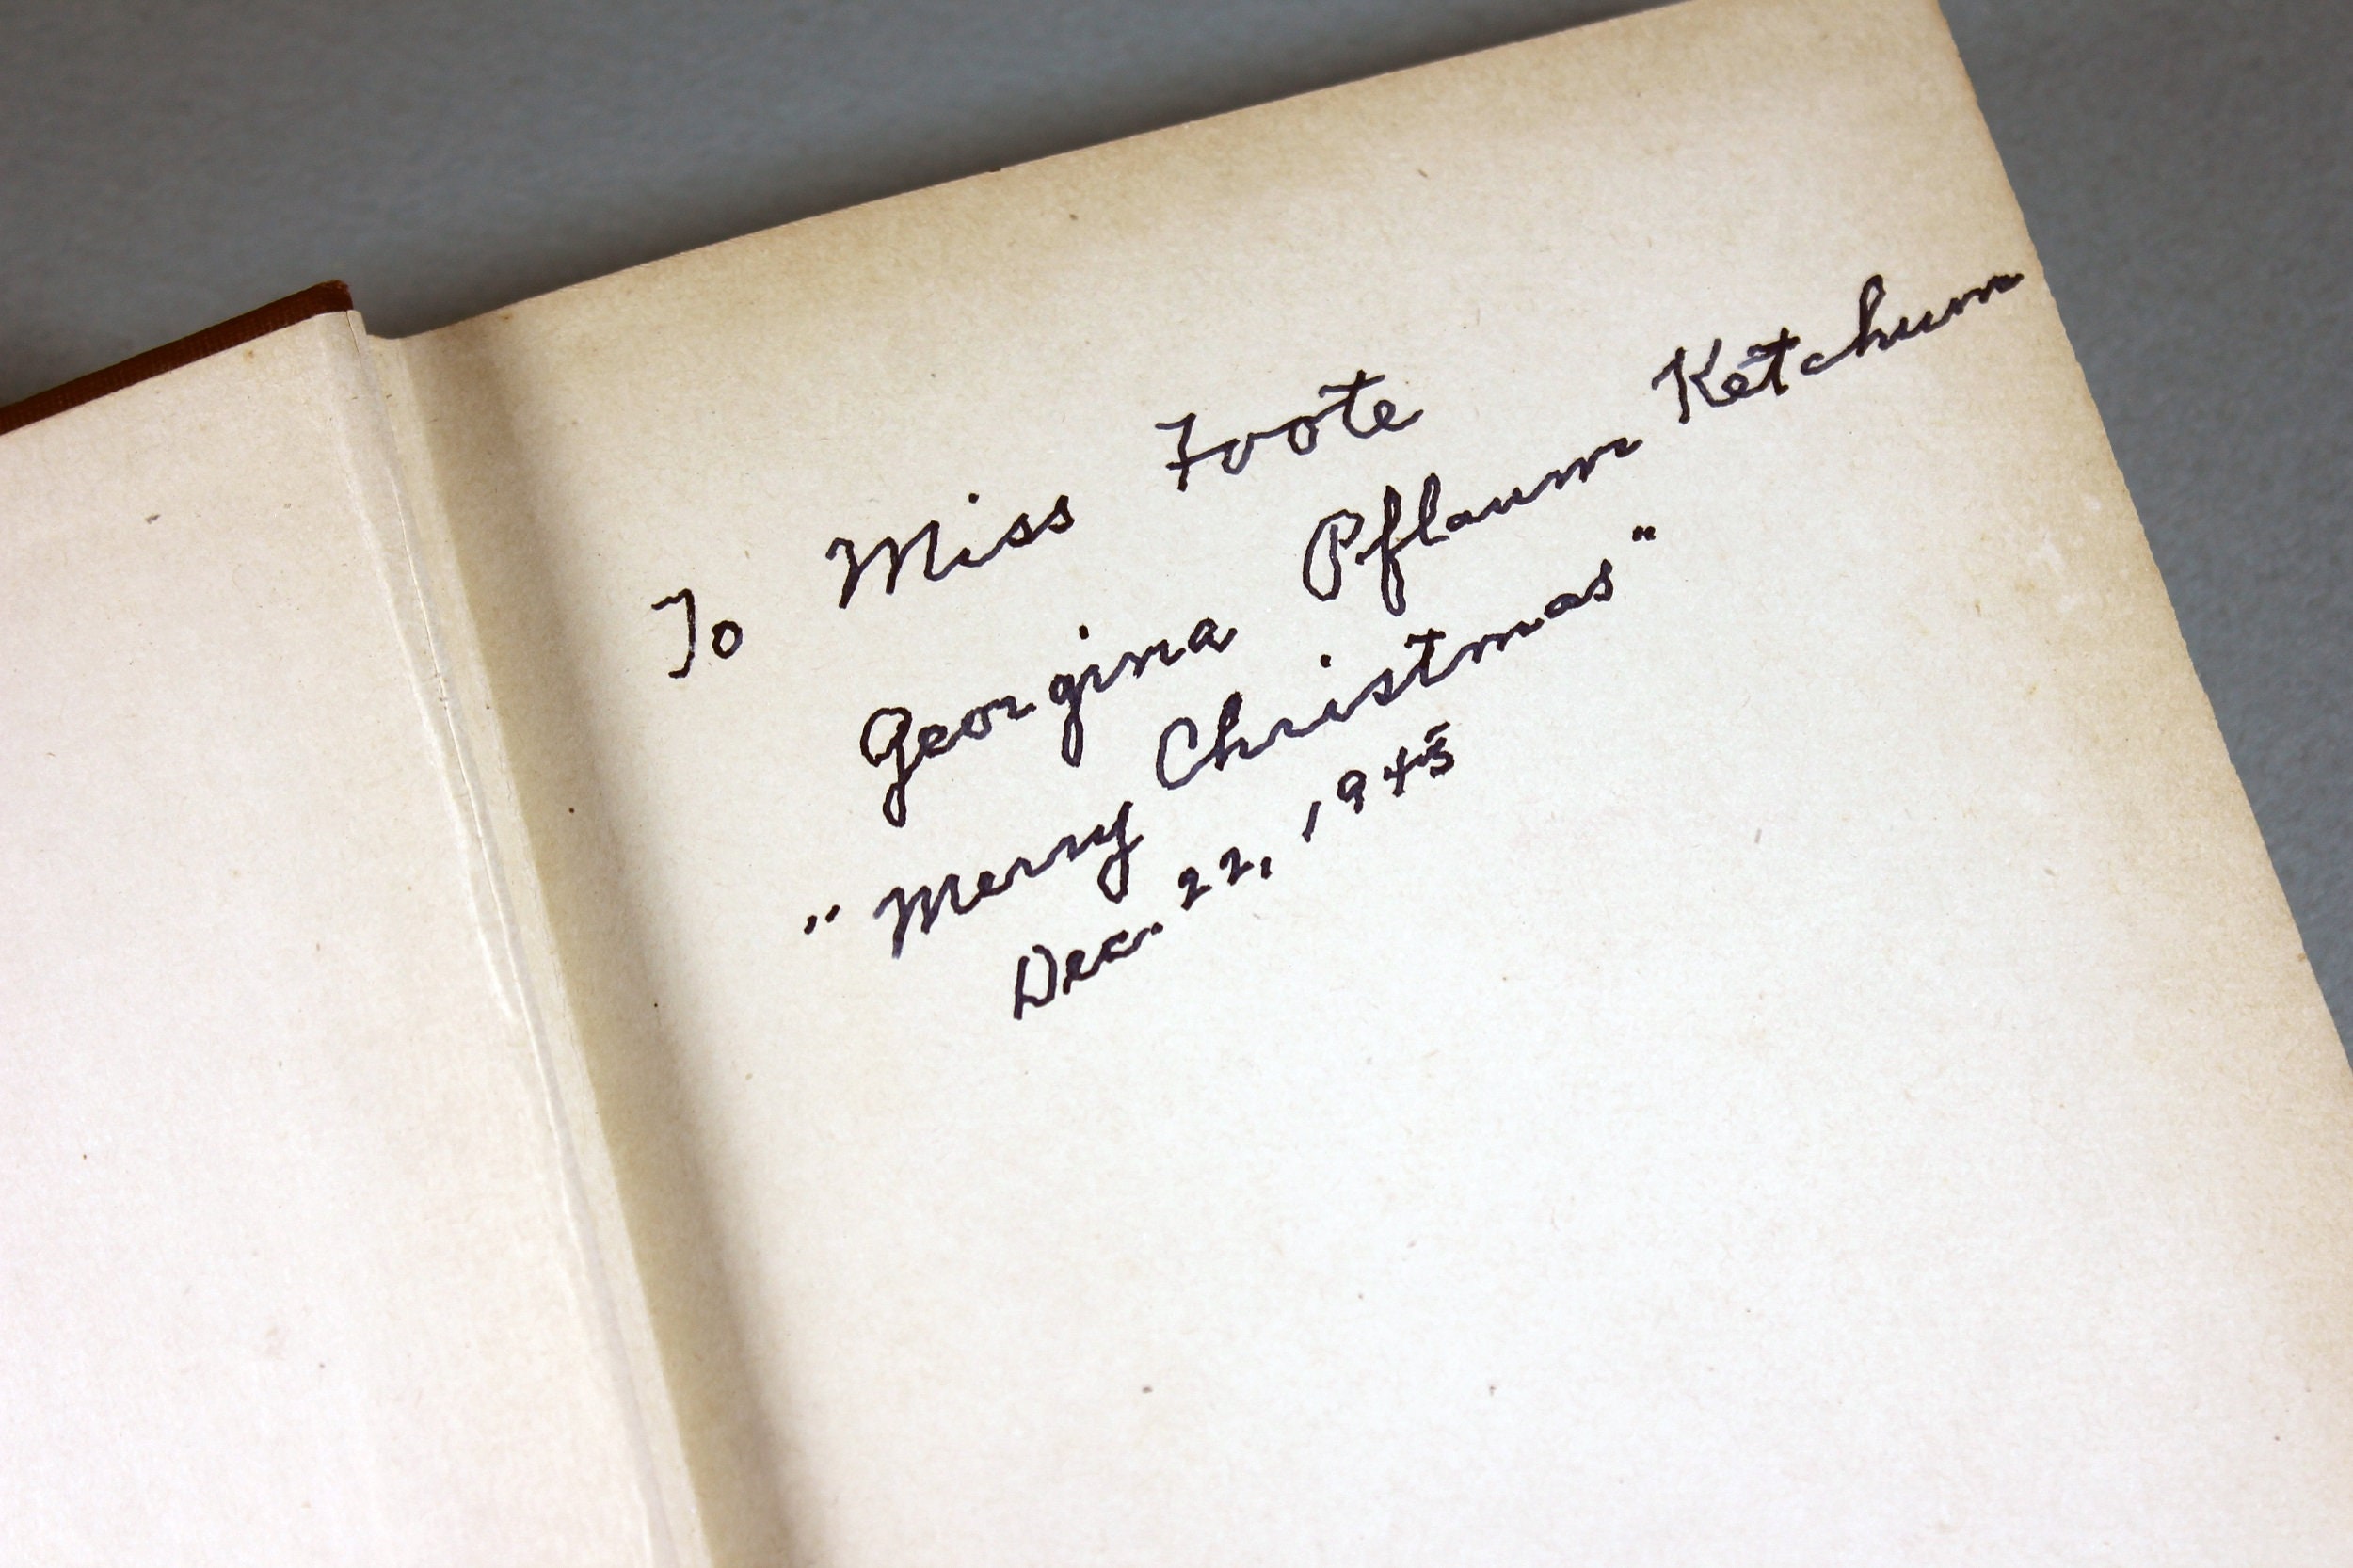 To Miss Foote
Georgina Pflaum Ketchum
"Merry Christmas"
Dec. 22, 1945